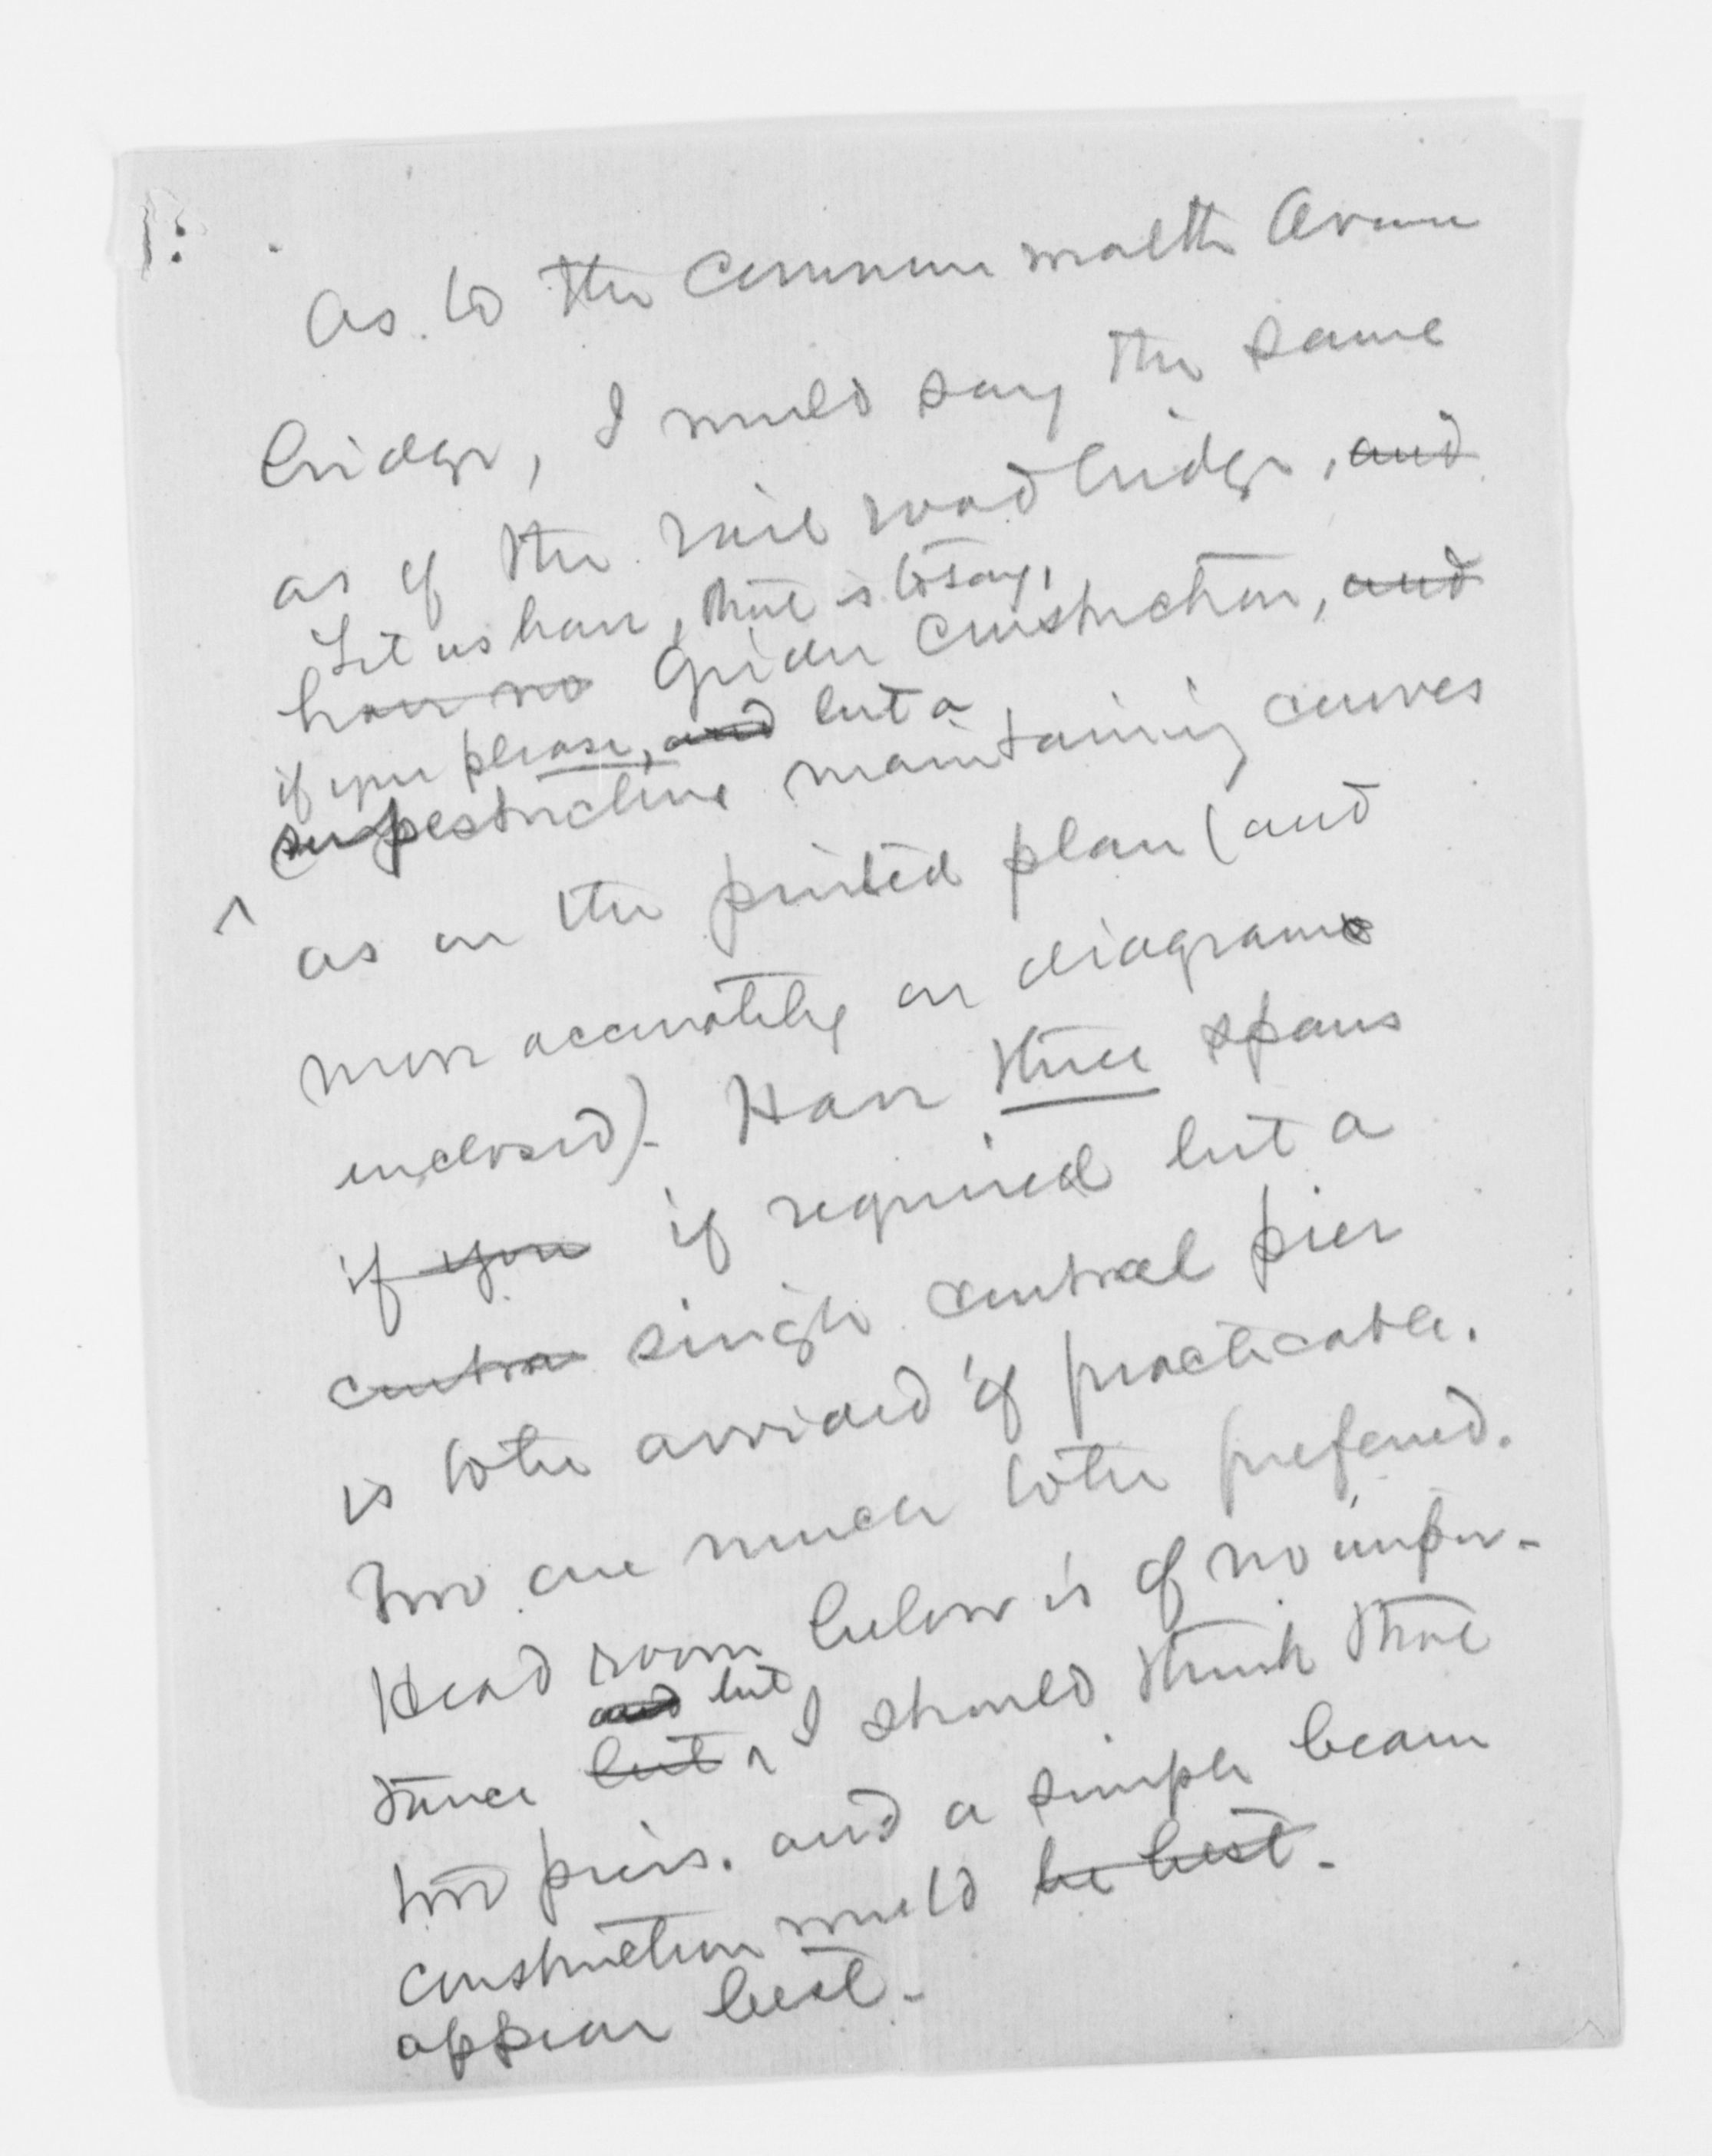 As to the Commonwealth Avenue
bridge, I would say the same
as of the rail road bridge, and
Let us have, that is to say,
have no girder construction, and
if you please, and but a
superstructure maintaining curves
as on the printed plan (and
more accurately on diagrams
enclosed). Have three spans
if you if required but a
centra single central pier
is to be avoided if practicable.
Two are much to be preferred.
Head room below is of no impor-
and but
tance but ^ I should think that
two piers. and a simple beam
construction would be best.
appear best.